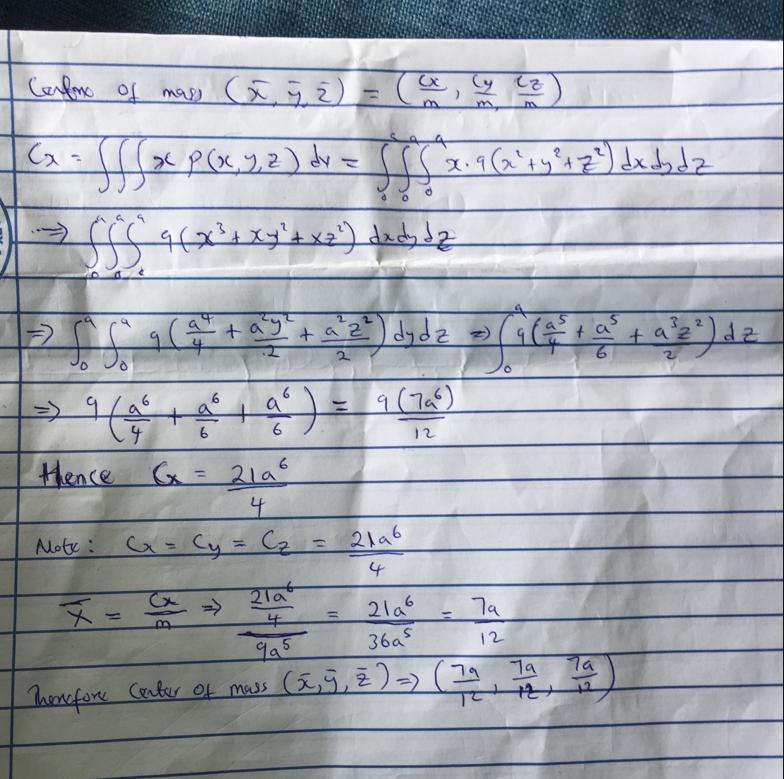 Center of mass (x̄, ȳ, z̄) = (Cx/m, Cy/m, Cz/m)
Cx = ∫∫∫ x ρ(x,y,z) dv = ∫₀ᵃ∫₀ᵃ∫₀ᵃ x·9(x²+y²+z²) dx dy dz
⇒ ∫₀ᵃ∫₀ᵃ∫₀ᵃ 9(x³+xy²+xz²) dx dy dz
⇒ ∫₀ᵃ∫₀ᵃ 9(a⁴/4 + a²y²/2 + a²z²/2) dy dz ⇒ ∫₀ᵃ 9(a⁵/4 + a⁵/6 + a³z²/2) dz
⇒ 9(a⁶/4 + a⁶/6 + a⁶/6) = 9(7a⁶)/12
Hence Cx = 21a⁶/4
Note: Cx = Cy = Cz = 21a⁶/4
x̄ = Cx/m ⇒ (21a⁶/4)/9a⁵ = 21a⁶/36a⁵ = 7a/12
Therefore Center of mass (x̄, ȳ, z̄) ⇒ (7a/12, 7a/12, 7a/12)